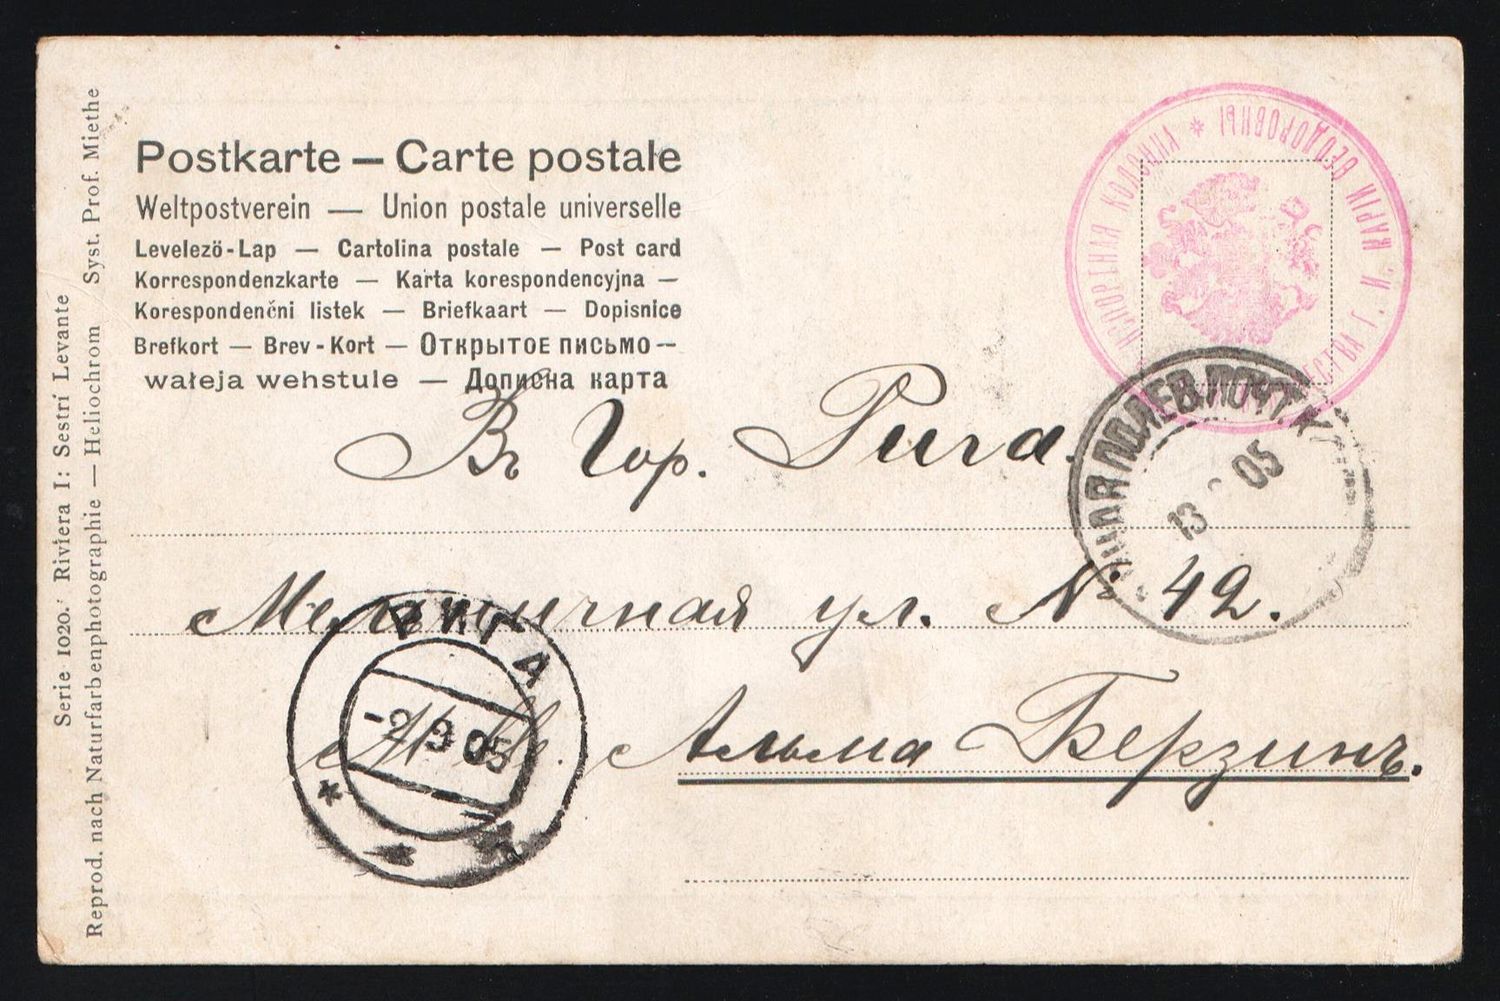 Postkarte — Carte postale
Weltpostverein — Union postale universelle
Levelezö-Lap — Cartolina postale — Post card
Korrespondenzkarte — Karta korespondencyjna —
Korespondenčni listek — Briefkaart — Dopisnice
Brefkort — Brev-Kort — Открытое письмо —
wałeja wehstule — Дописна карта
Serie 1020. Riviera I: Sestri Levante
Reprod. nach Naturfarbenphotographie — Heliochrom Syst. Prof. Miethe
МАРІИ ѲЕОДОРОВНЫ *
ПОЛЕВ. ПОЧТ. К
13 05
Въ Гор. Рига.
Мельничная ул. № 42.
Альма Берзинь.
РИГА
-2 9 05